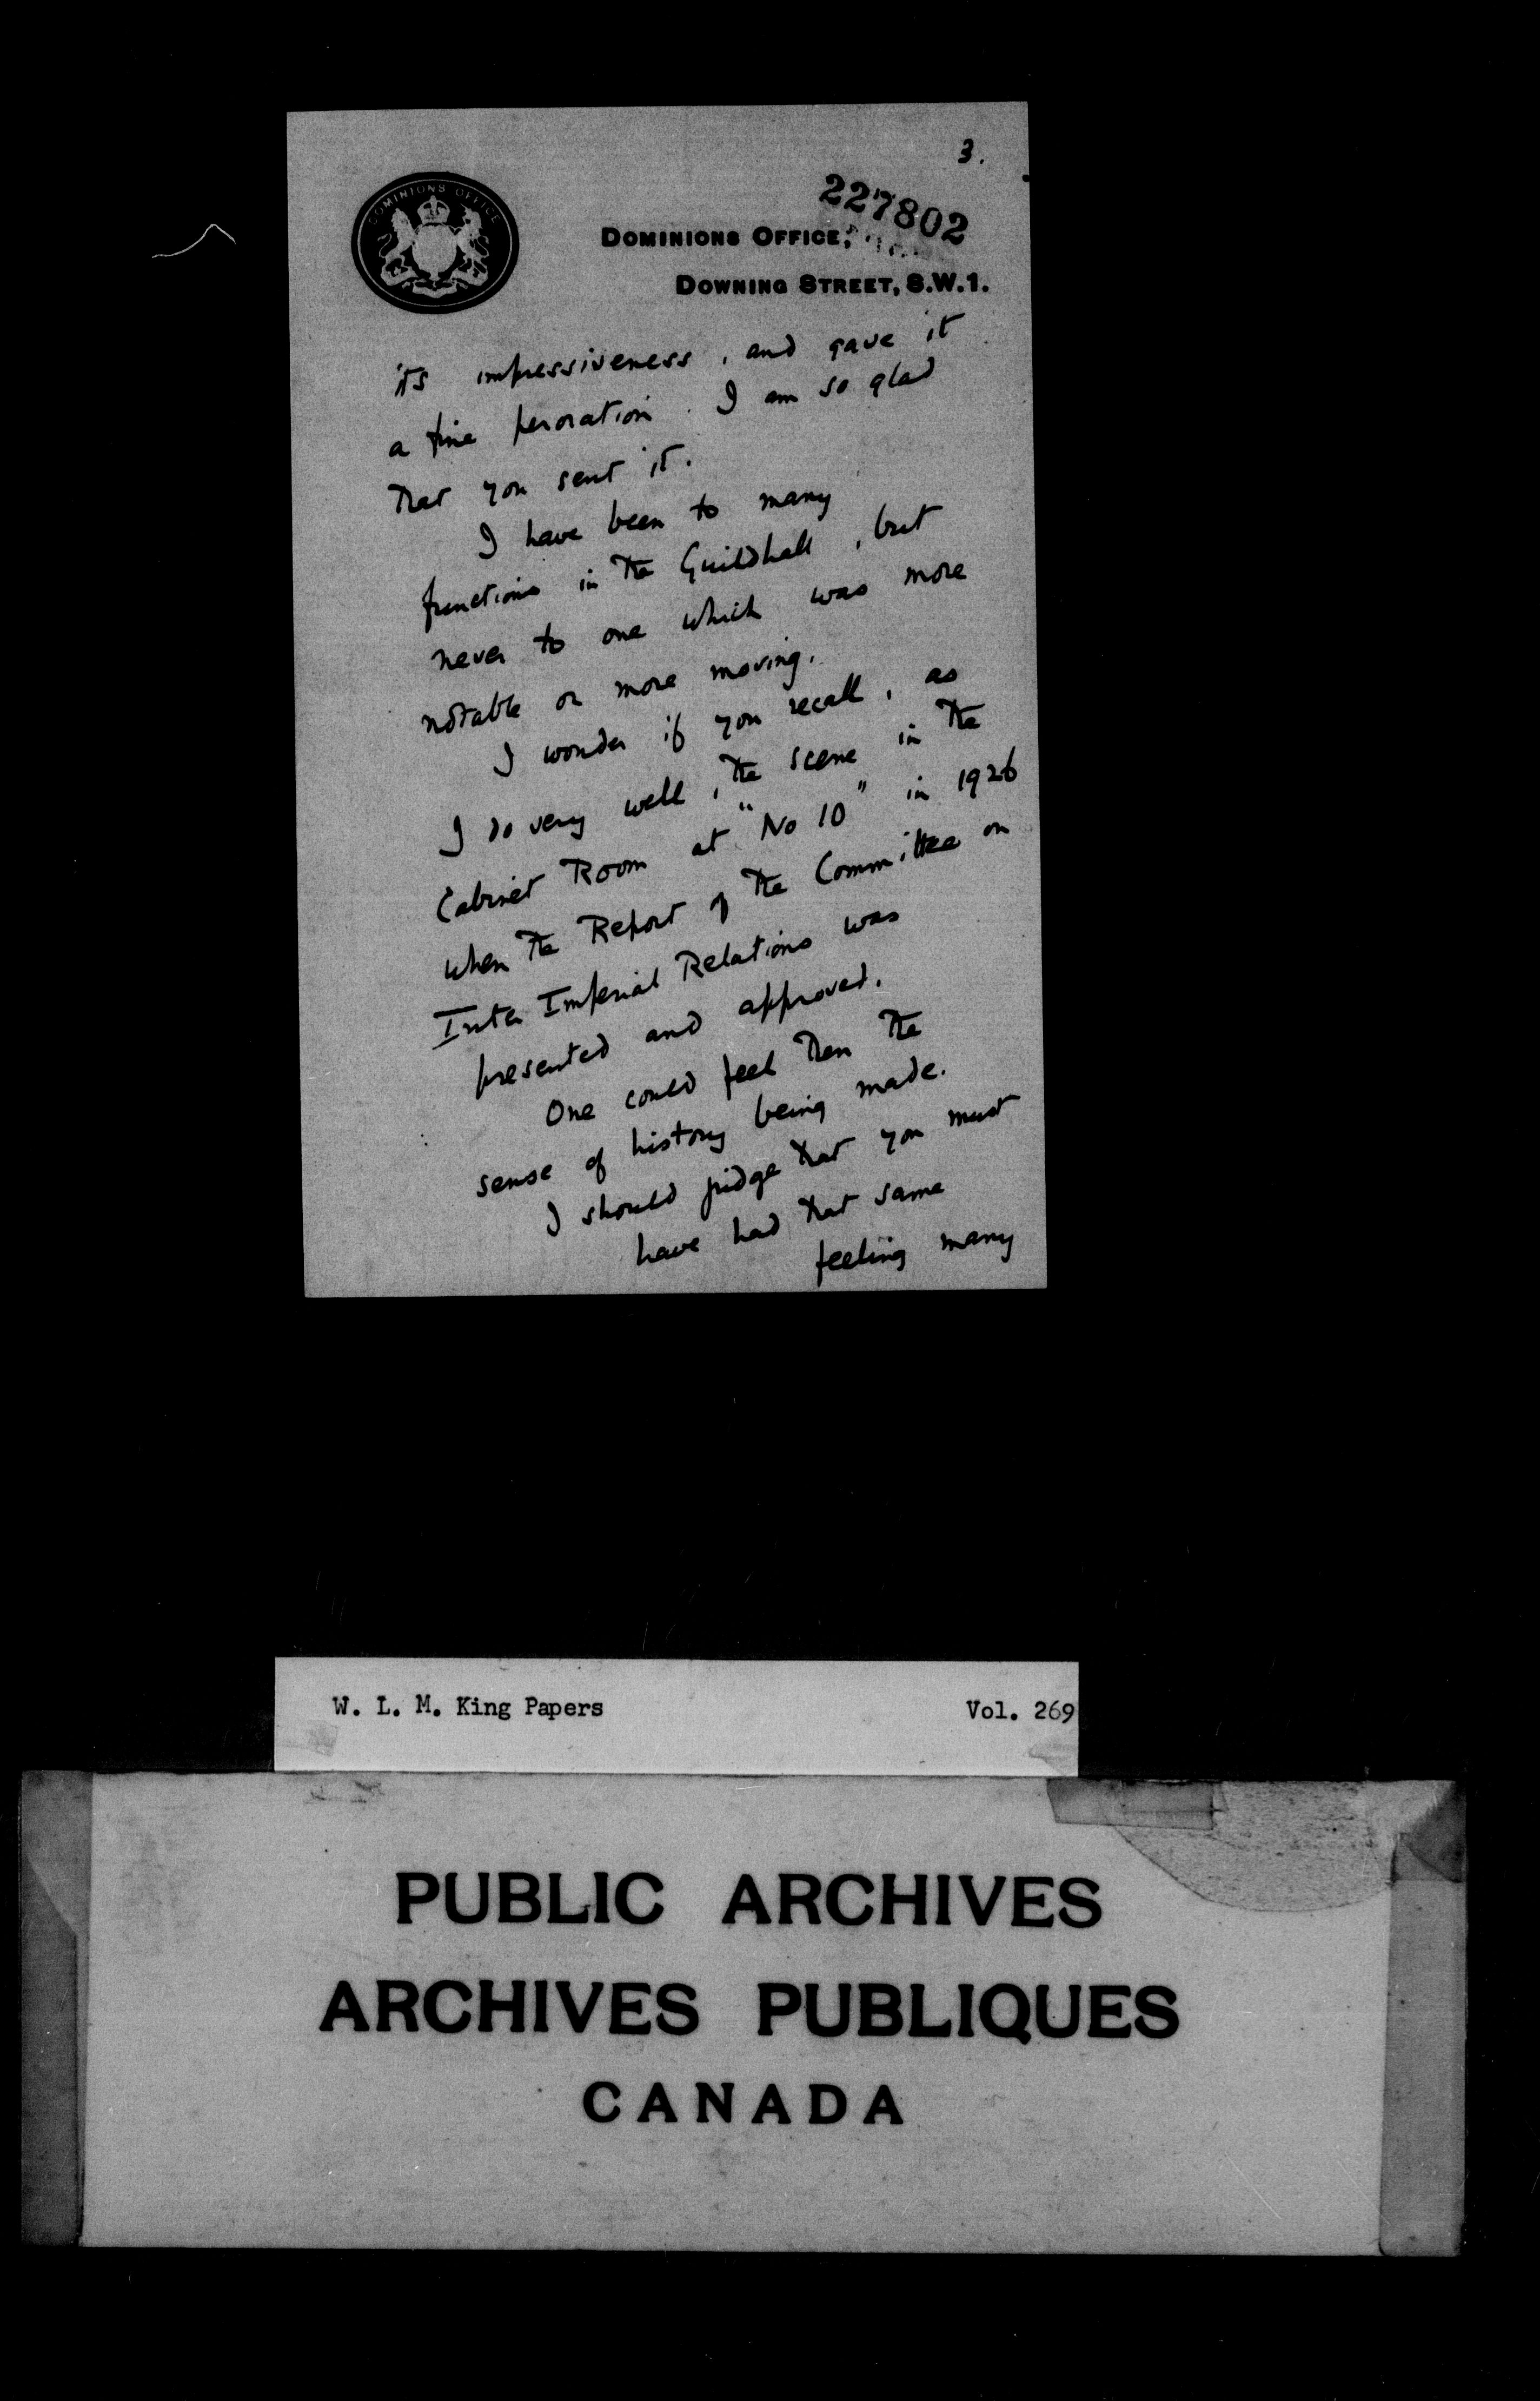 3.
227802
DOMINIONS OFFICE
DOMINIONS OFFICE,
DOWNING STREET, S.W.1.
its impressiveness, and gave it
a fine peroration. I am so glad
that you sent it.
I have been to many
functions in the Guildhall, but
never to one which was more
notable or more moving.
I wonder if you recall, as
I do very well, the scene in the
Cabinet Room at "No 10" in 1926
when the Report of the Committee on
Inter Imperial Relations was
presented and approved.
One could feel then the
sense of history being made.
I should judge that you must
have had that same
feeling many
W. L. M. King Papers Vol. 269
PUBLIC ARCHIVES
ARCHIVES PUBLIQUES
CANADA